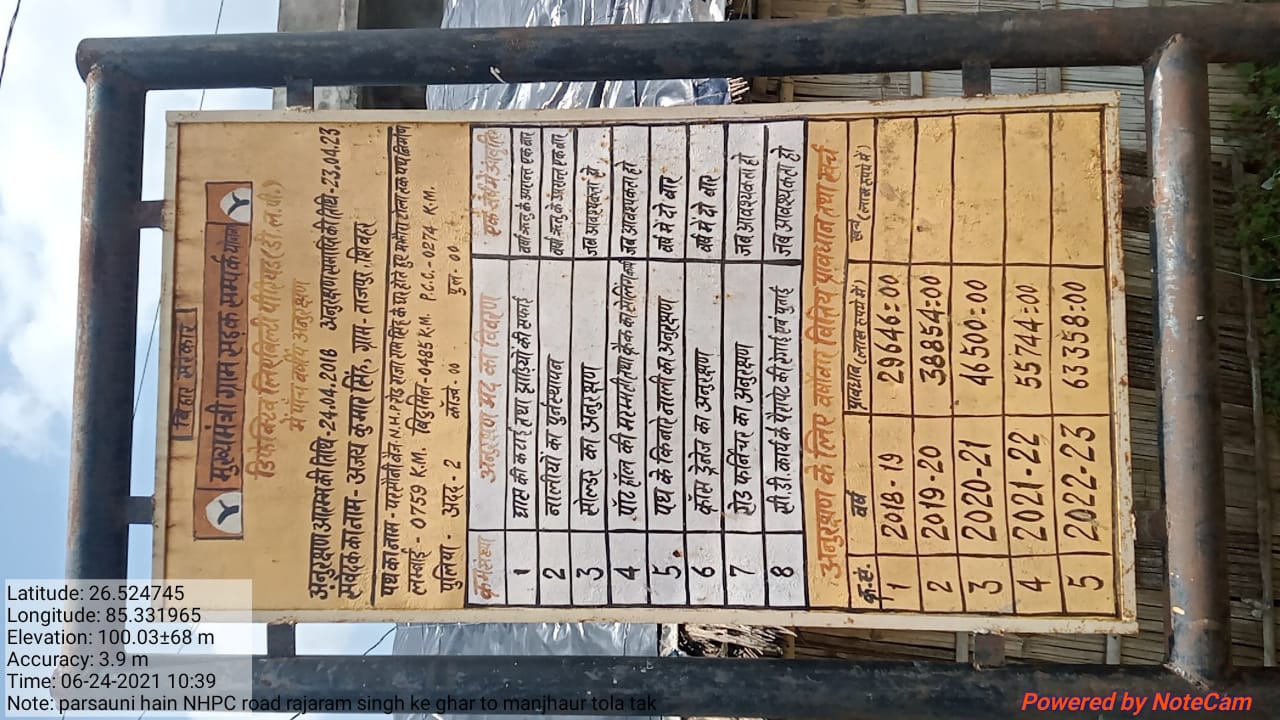 बिहार सरकार
मुख्यमंत्री ग्राम सड़क सम्पर्क योजना
डिफेक्टिव लिएबिलिटी पीरियड (डी.ल.पी.)
में पाँच वर्षीय अनुरक्षण
अनुरक्षण आरम्भ की तिथि-24.04.2018 अनुरक्षण समाप्ति की तिथि-23.04.23
संवेदक का नाम - अजय कुमार सिंह, ग्राम - ताजपुर, शिवहर
पथ का नाम - परसौनी बेन N.H.P रोड राजा राम सिंह के घर होते हुए मझौरा टोला तक पथ निर्माण
लम्बाई - 0759 K.M. बिटुमिन - 0485 K.M. P.C.C.- 0274 K.M.
पुलिया - अदद - 2 कॉजवे - 00 पुल - 00
क्रम संख्या अनुरक्षण मद का विवरण एक वर्ष में आवृति
1 घास की कटाई तथा झाड़ियों की सफाई वर्षा ऋतु के उपरान्त एक बार
2 नालीयों का पुर्नस्थापन वर्षा ऋतु के उपरान्त एक बार
3 सोल्डर का अनुरक्षण जब आवश्यकता हो
4 पॉट हॉल की मरम्मती क्रैक का सीलिंग कार्य जब आवश्यकता हो
5. पथ के किनारे नाली का अनुरक्षण वर्ष में दो बार
6 क्रॉस ड्रेनेज का अनुरक्षण वर्ष में दो बार
7 रोड फर्निचर का अनुरक्षण जब आवश्यकता हो
8 सी.डी. कार्य के पैरापेट की रंगाई एवं पुताई जब आवश्यकता हो
अनुरक्षण के लिए वर्षवार वित्तिय प्रावधान तथा खर्च
क्र.सं. वर्ष प्रावधान (लाख रूपये में) खर्च (लाख रूपये में)
1 2018-19 29646=00
2 2019-20 38854=00
3 2020-21 46500=00
4 2021-22 55774=00
5 2022-23 63358=00
Latitude: 26.524745
Longitude: 85.331965
Elevation: 100.03±68 m
Accuracy: 3.9 m
Time: 06-24-2021 10:39
Note: parsauni hain NHPC road rajaram singh ke ghar to manjhaur tola tak
Powered by NoteCam